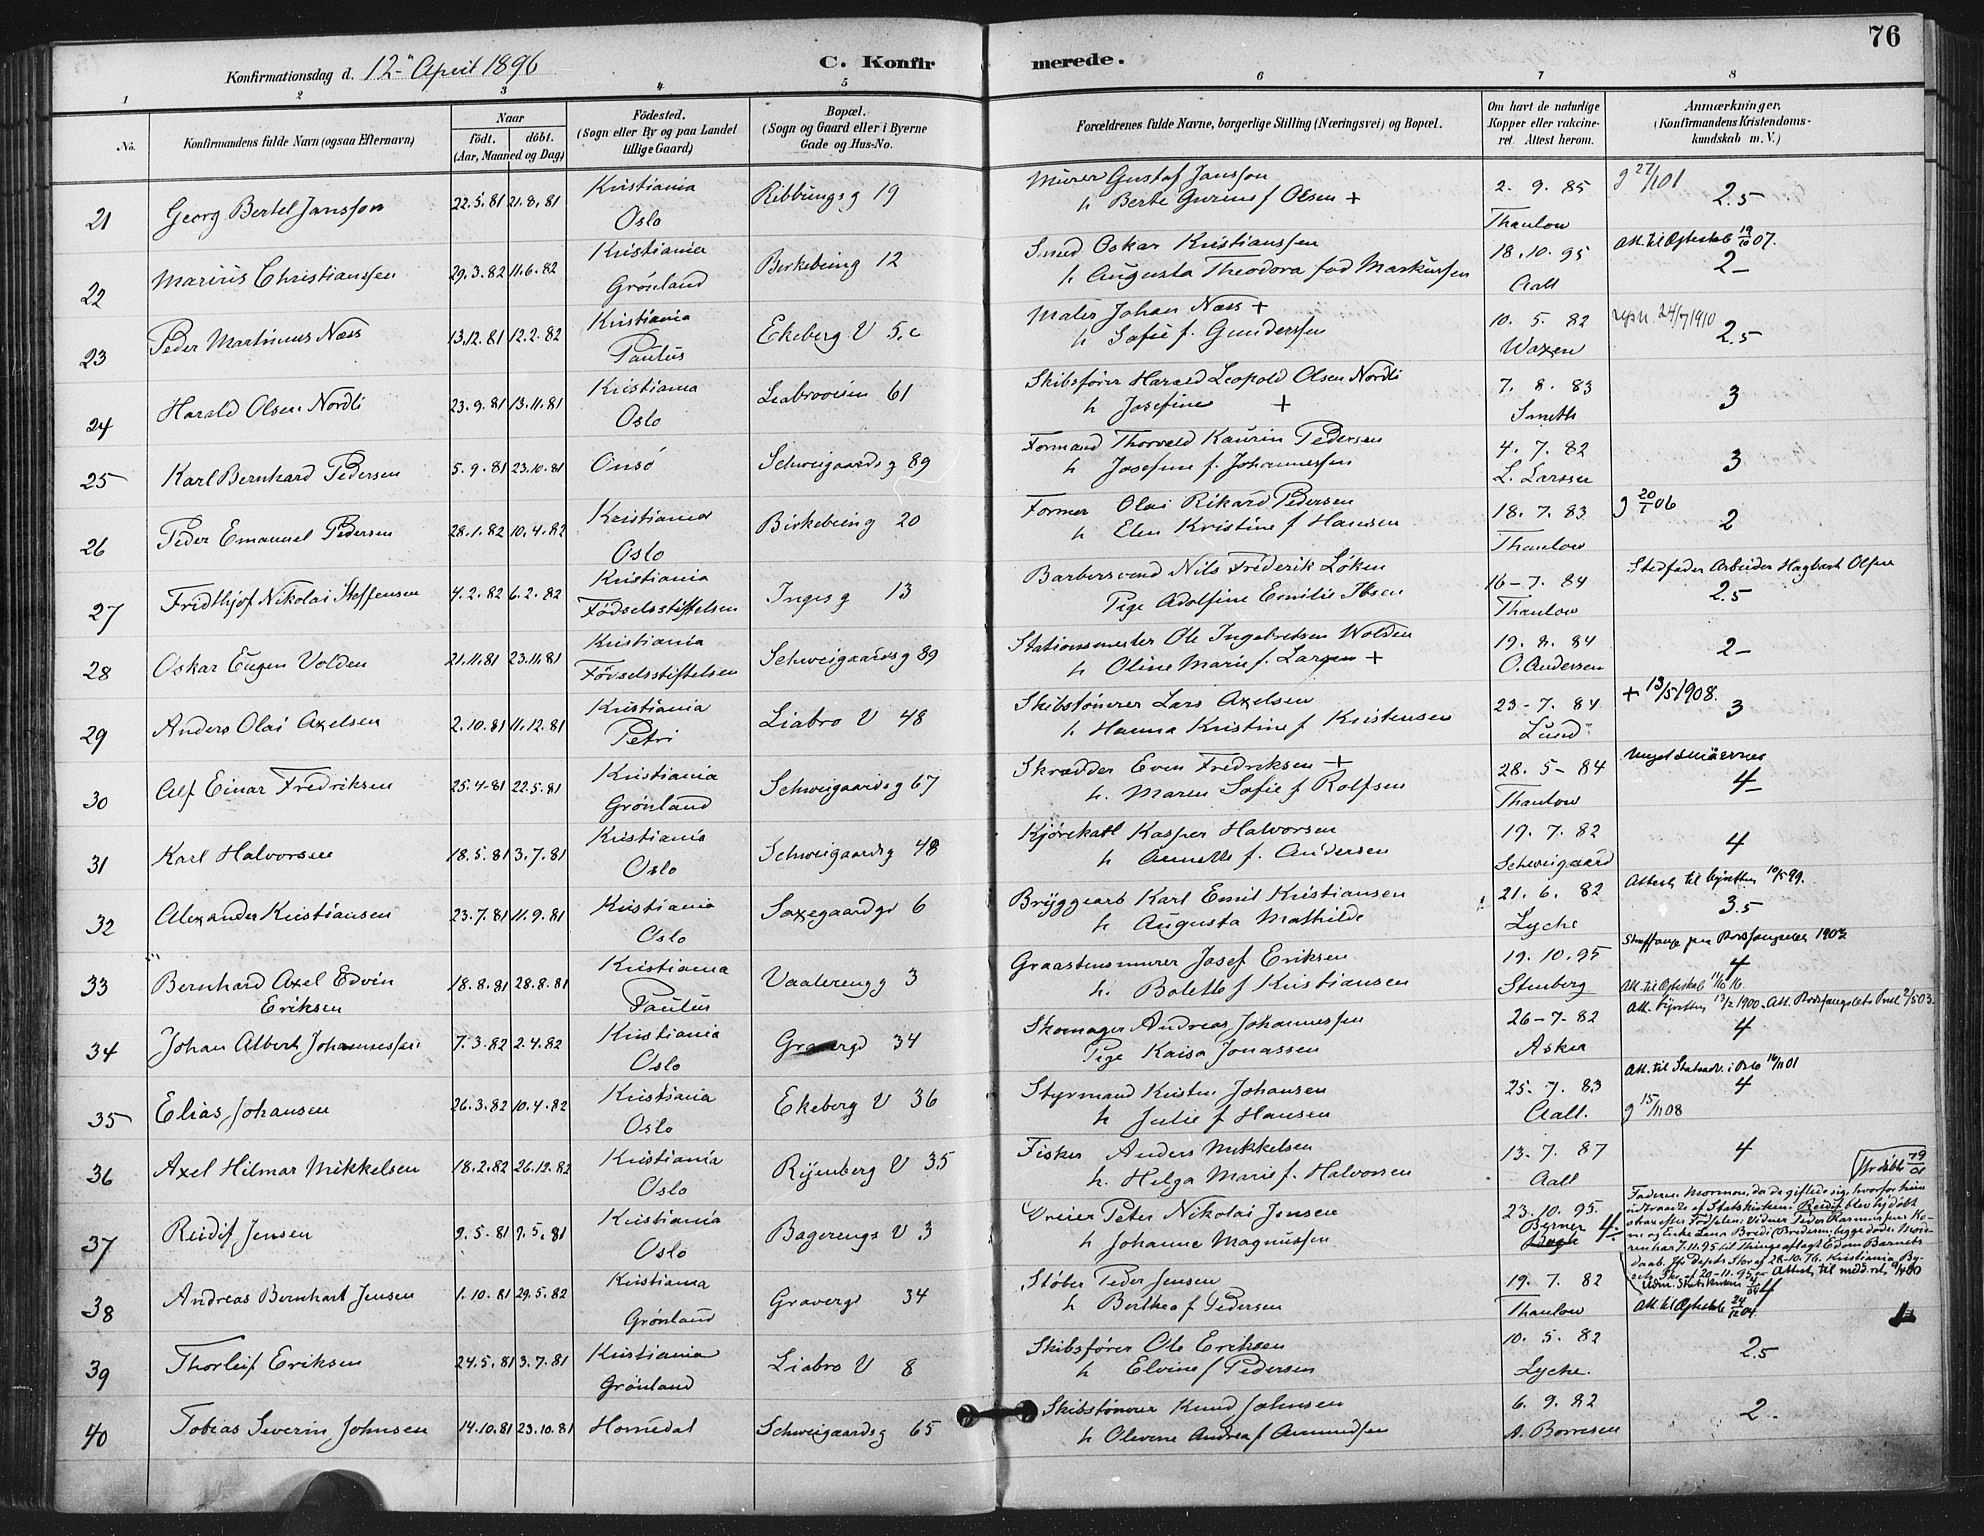 76
Konfirmationsdag d. 12. April 1896 C. Konfirmerede.
1 2 3 4 5 6 7 8
No.
Konfirmandens fulde Navn (ogsaa Efternavn)
Naar
födt. döbt.
(Aar, Maaned og Dag)
Födested.
(Sogn eller By og paa Landet
tillige Gaard)
Bopæl.
(Sogn og Gaard eller i Byerne
Gade og Hus-No.
Forældrenes fulde Navne, borgerlige Stilling (Næringsvei) og Bopæl.
Om havt de naturlige
Kopper eller vaccine-
ret. Attest herom.
Anmærkninger.
(Konfirmandens Kristendoms-
kundskab m. V.)
21 Georg Bertel Janssen 22.5.81 21.8.81 Kristiania Oslo Ribbungsg 19
Murer Gustaf Janssen h Berte Gurine f Olsen + 2. 9. 85 Thaulow g 27/1 01 2.5
22 Marius Christianssen 29.3.82 11.6.82 Kristiania Grønland Birkebeing 12
Smed Oskar Kristianssen h Augusta Theodora fød Markussen 18.10.95 Aall Att. til Ægteskab 19/10 07. 2-
23 Peder Martinius Næss 13.12.81 12.2.82 Kristiania Paulus Ekeberg V 5.c
Maler Johan Næss + h Sofie f. Gunderssen 10. 5. 82 Waxen 24/7 1910 2.5
24 Harald Olsen Nordli 23.9.81 13.11.81 Kristiania Oslo Liabroveien 61
Skibsfører Harald Leopold Olsen Nordli h Josefine + 7. 8. 83 Smith 3
25 Karl Bernhard Pedersen 5.9.81 23.10.81 Onsö Schweigaardsg 89
Formand Thorvald Kaurin Pedersen h Josefine f. Johannessen 4. 7. 82 L. Larssen 3
26 Peder Emanuel Pedersen 28.1.82 10.4.82 Kristiania Oslo Birkebeing 20
Former Olai Rikard Pedersen h Elen Kristine f Hansen 18. 7. 83 Thaulow g 20/1 06 2
27 Fridthjof Nikolai Steffensen 4.2.82 6.2.82 Kristiania Födselsstiftelsen Ingesg 13
Barbersvend Nils Frederik Löken Pige Adolfine Emilie Ibsen 16-7. 84 Thaulow Stedfader Arbeider Hagbart Olsen 2.5
28 Oskar Eugen Volden 21.11.81 23.11.81 Kristiania Födselsstiftelsen Schweigaardsg 89
Stationsmester Ole Ingebretsen Wolden h Oline Marie f. Larsen + 19. 8. 84 O. Andersen 2-
29 Anders Olai Axelsen 2.10.81 11.12.81 Kristiania Petri Liabro V 48
Skibstömrer Lars Axelsen h Hanna Kristine f Kristensen 23-7. 84 Lund + 13/5 1908. 3
30 Alf Einar Fredriksen 25.4-81 22.5.81 Kristiania Grønland Schweigaardsg 67
Skrædder Even Fredriksen + h. Maren Sofie f Rolfsen 28. 5-84 Thaulow 4
31 Karl Halvorsen 18.5.81 3.7.81 Kristiania Oslo Schweigaardsg 48
Kjörekarl Kasper Halvorsen h Annette f. Andersen 19. 7. 82 Schweigaard 4
32 Alexander Kristiansen 23.7.81 11.9.81 Kristiania Oslo Saxegaardgd 6
Bryggearb Karl Emil Kristiansen h Augusta Mathilde 21. 6. 82 Lyche 3.5
33 Bernhard Axel Edvin
Eriksen 18.8.81 28.8.81 Kristiania Paulus Vaalerengg 3
Graastensmurer Josef Eriksen h. Bolette f Kristiansen 19.10.95 Stenberg 4 Att. til Ægteskab
34 Johan Albert Johannessen 7.3.82 2.4.82 Kristiania Oslo Gravergd 34
Skomager Andreas Johannessen Pige Kaisa Jonassen 26-7. 82 Asker 4
35 Elias Johansen 26.3.82 10.4.82 Kristiania Oslo Ekeberg V 36
Styrmand Kristen Johansen h Julie f Hansen 25-7. 83 Aall. Att. til Statsadv. i Oslo 16/11 01 4 g 15/11 08
36 Axel Hilmar Mikkelsen 18.2.82 26.12.82 Kristiania Oslo Ryenberg V 35
Fisker Anders Mikkelsen h. Helga Marie f. Halvorsen 13-7. 87 Aall 4
37 Reidif Jensen 9.5.81 9.5.81 Kristiania Oslo Bagerengs V 3
Dreier Peter Nikolai Jensen h Johanne Magnussen 23.10.95. Berner 4.
Faderen Mormon, da de giftede sig, hvorfor hun
udtraadte af Statskirken. Reidif blev hjdöbt
strax efter Födselen; Vidner Peder Rasmussens Ko-
ne og Enke Lena Bredi
38 Andreas Bernhart Jensen 1.10.81 29.5.82 Kristiania Grønland Gravergd 34
Støber Peder Jensen h Berthea f Pedersen 19. 7. 82 Thaulow Att. til Ægteskab 24/12 04
39 Thorleif Eriksen 24.5.81 3.7.81 Kristiania Grönland Liabro V 8
Skibsfører Ole Eriksen h Elvine f Pedersen 10. 5. 82 Lyche. 2.5
40 Tobias Severin Johnsen 14.10.81 23.10.81 Homedal Schweigaardsg 65
Skibstömrer Knud Johnsen h Olevine Andrea f Amundsen 6. 9. 82 A. Borresen 2.